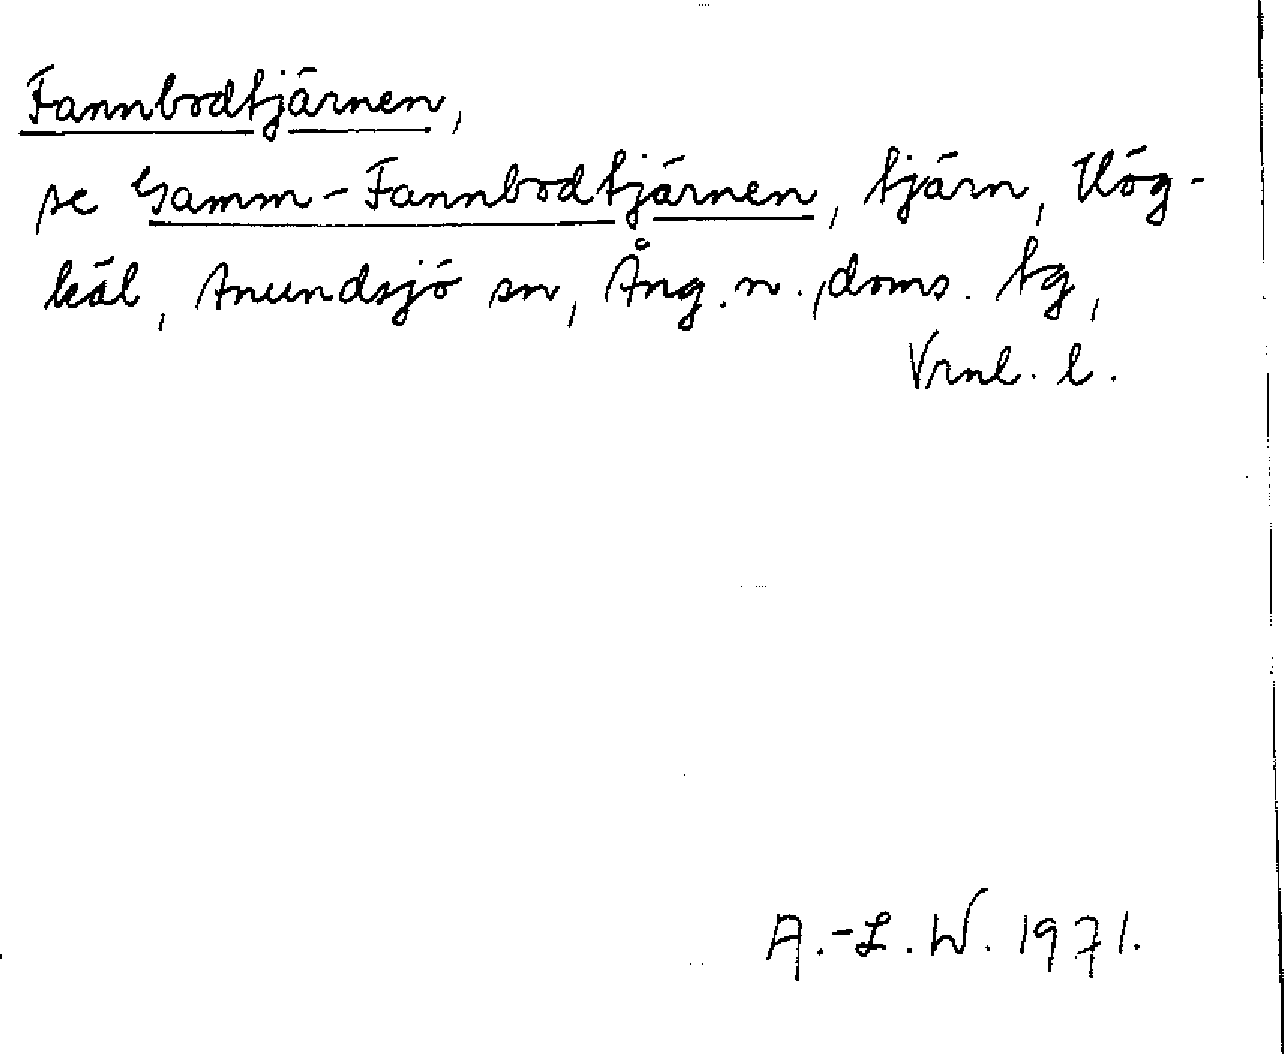 Fannbodtjärnen,
se Gamm-Fannbodtjärnen, tjärn, Hög-
käl, Anundsjö sn, Ång. n., doms. tg,
Vrnl. l.
A.-L. W. 1971.